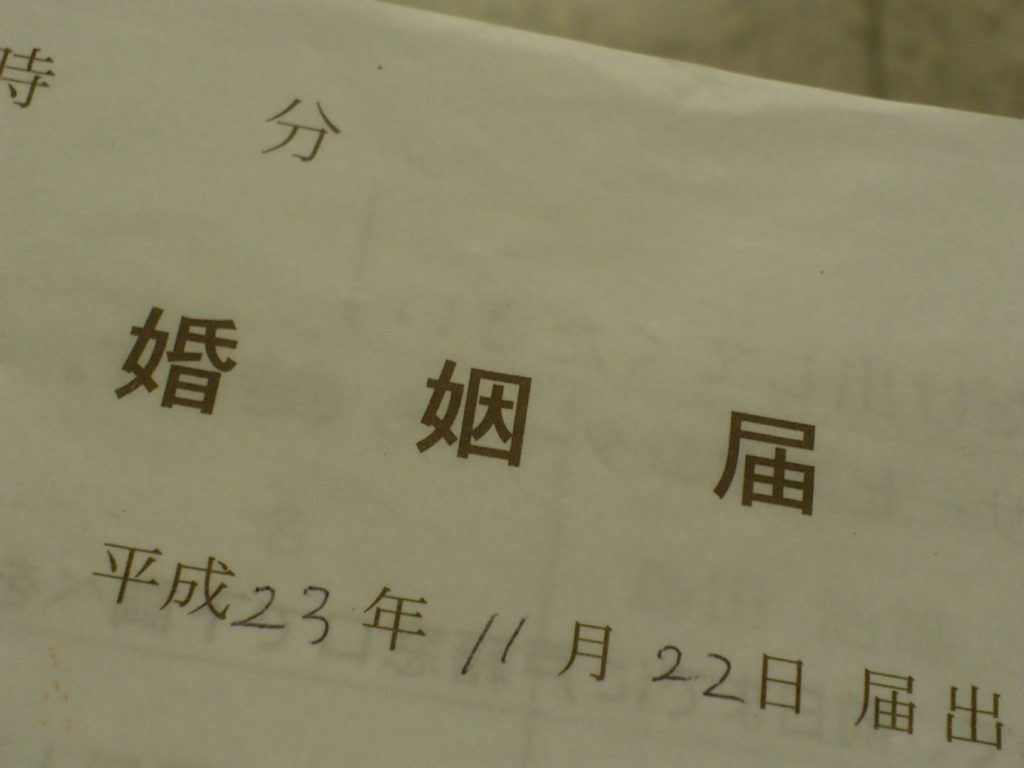 時 分
婚 姻 届
平成23年 11月 22日 届出